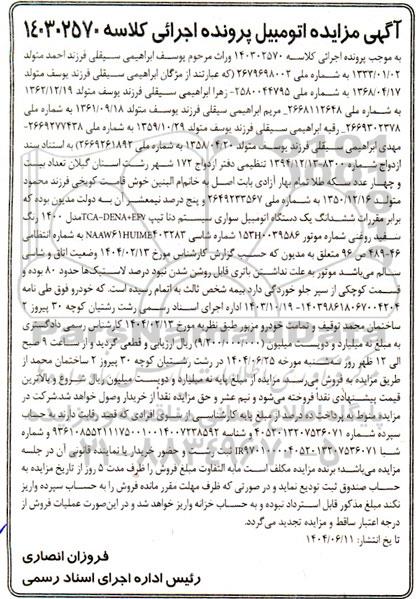 آگهی مزایده اتومبیل پرونده اجرائی کلاسه ۱۴۰۳۰۲۵۷۰
به موجب پرونده اجرائی کلاسه ۱۴۰۳۰۲۵۷۰ وراث مرحوم یوسف ابراهیمی سیقلی فرزند احمد متولد
۱۳۳۳/۰۱/۰۲ به شماره ملی ۲۶۷۹۶۹۸۰۰۲ (که عبارتند از مژگان ابراهیمی سیقلی فرزند یوسف متولد
۱۳۶۸/۰۴/۱۷ به شماره ملی ۲۵۸۰۰۴۴۷۹۵- زهرا ابراهیمی سیقلی فرزند یوسف متولد ۱۳۶۲/۱۲/۱۹
به شماره ملی ۲۶۶۸۱۱۲۶۴۸_ مریم ابراهیمی سیقلی فرزند یوسف متولد ۱۳۶۱/۰۹/۱۸ به شماره ملی
۲۶۶۹۳۰۲۳۷۸_ رقیه ابراهیمی سیقلی فرزند یوسف متولد ۱۳۵۹/۱۰/۲۹ به شماره ملی ۲۶۶۹۲۷۷۴۳۸-
مهدی ابراهیمی سیقلی فرزند یوسف متولد ۱۳۵۸/۰۴/۲۰ به شماره ملی ۲۶۶۹۲۶۱۸۹۲) به استناد سند
ازدواج شماره ۸۳۰۰-۱۳۹۴/۱۲/۱۳ تنظیمی دفتر ازدواج ۱۷۲ شهر رشت استان گیلان تعداد بیست
و چهار عدد سکه طلا تمام بهار آزادی بابت اصل به خانم ام البنین خوش قامت کویخی فرزند محمود
متولد ۱۳۵۰/۱۲/۱۶ به شماره ملی ۲۶۴۹۲۳۳۵۶۷ و پنج درصد نیمعشر آن به دولت مدیون بوده که
برابر مقررات ششدانگ یک دستگاه اتومبیل سواری سیستم دنا تیپ TCA-DENA+EF7 مدل ۱۴۰۰ رنگ
سفید روغنی شماره موتور ۱۵۳H۰۰۳۹۵۸۶ شماره شاسی NAAW61HU1ME403283 به شماره انتظامی
۴۶-۴۸۹ ص ۹۶ متعلق به مدیون که حسب گزارش کارشناس مورخ ۱۴۰۴/۰۲/۱۳ وضعیت اتاق و شاسی
سالم می‌باشد موتور به علت نداشتن باتری قابل روشن شدن نبود درصد لاستیک‌ها حدود ۸۰ بوده و
قسمت کوچکی از سپر جلو خوردگی دارد بیمه شخص ثالث به اتمام رسیده است، که خودرو فوق طی نامه
۱۴۰۳۹۸۶۱۸۰۶۷۰۰۴۲۰۴-۱۴۰۳/۱۰/۱۹ اداره اجرای اسناد رسمی رشت رشتیان کوچه ۳۰ پیروز ۲
ساختمان محمد توقیف و تمامت خودرو مزبور طبق نظریه مورخ ۱۴۰۴/۰۲/۱۳ کارشناس رسمی دادگستری
به مبلغ نه میلیارد و دویست میلیون (۹/۲۰۰/۰۰۰/۰۰۰) ریال ارزیابی و قطعی گردید و از ساعت ۹ صبح
الی ۱۲ ظهر روز سه‌شنبه مورخه ۱۴۰۴/۰۶/۲۵ در رشت رشتیان کوچه ۳۰ پیروز ۲ ساختمان محمد از
طریق مزایده به فروش می‌رسد، مزایده از مبلغ پایه نه میلیارد و دویست میلیون ریال شروع و بالاترین
قیمت پیشنهادی نقدا فروخته می‌شود و نیم عشر و حق مزایده نقدا از خریدار وصول خواهد شد، شرکت در
مزایده منوط به پرداخت ده درصد از مبلغ پایه کارشناسی از سوی افرادی که قصد رقابت دارند به حساب
سپرده شماره ۴۰۵۲۰۱۳۲۰۷۵۳۶۰۷۱ و شناسه ۹۳۶۱۰۸۵۵۲۱۱۱۷۵۰۰۱۰۰۱۴۰۰۷۲۳۸۵۹۲ و شماره
شبا ثبت رشت و حضور خریدار یا نماینده قانونی آن در جلسه
مزایده می‌باشد؛ برنده مزایده مکلف است مابه التفاوت مبلغ فروش را ظرف مدت ۵ روز از تاریخ مزایده به
حساب صندوق ثبت تودیع نماید و در صورتی که ظرف مهلت مقرر مانده فروش را به حساب سپرده واریز
نکند مبلغ مذکور قابل استرداد نبوده و به حساب خزانه واریز خواهد شد و در این‌صورت عملیات فروش از
درجه اعتبار ساقط و مزایده تجدید می‌گردد.
تا یخ انتشار: ۱۴۰۴/۰۶/۱۱
فروزان انصاری
رئیس اداره اجرای اسناد رسمی